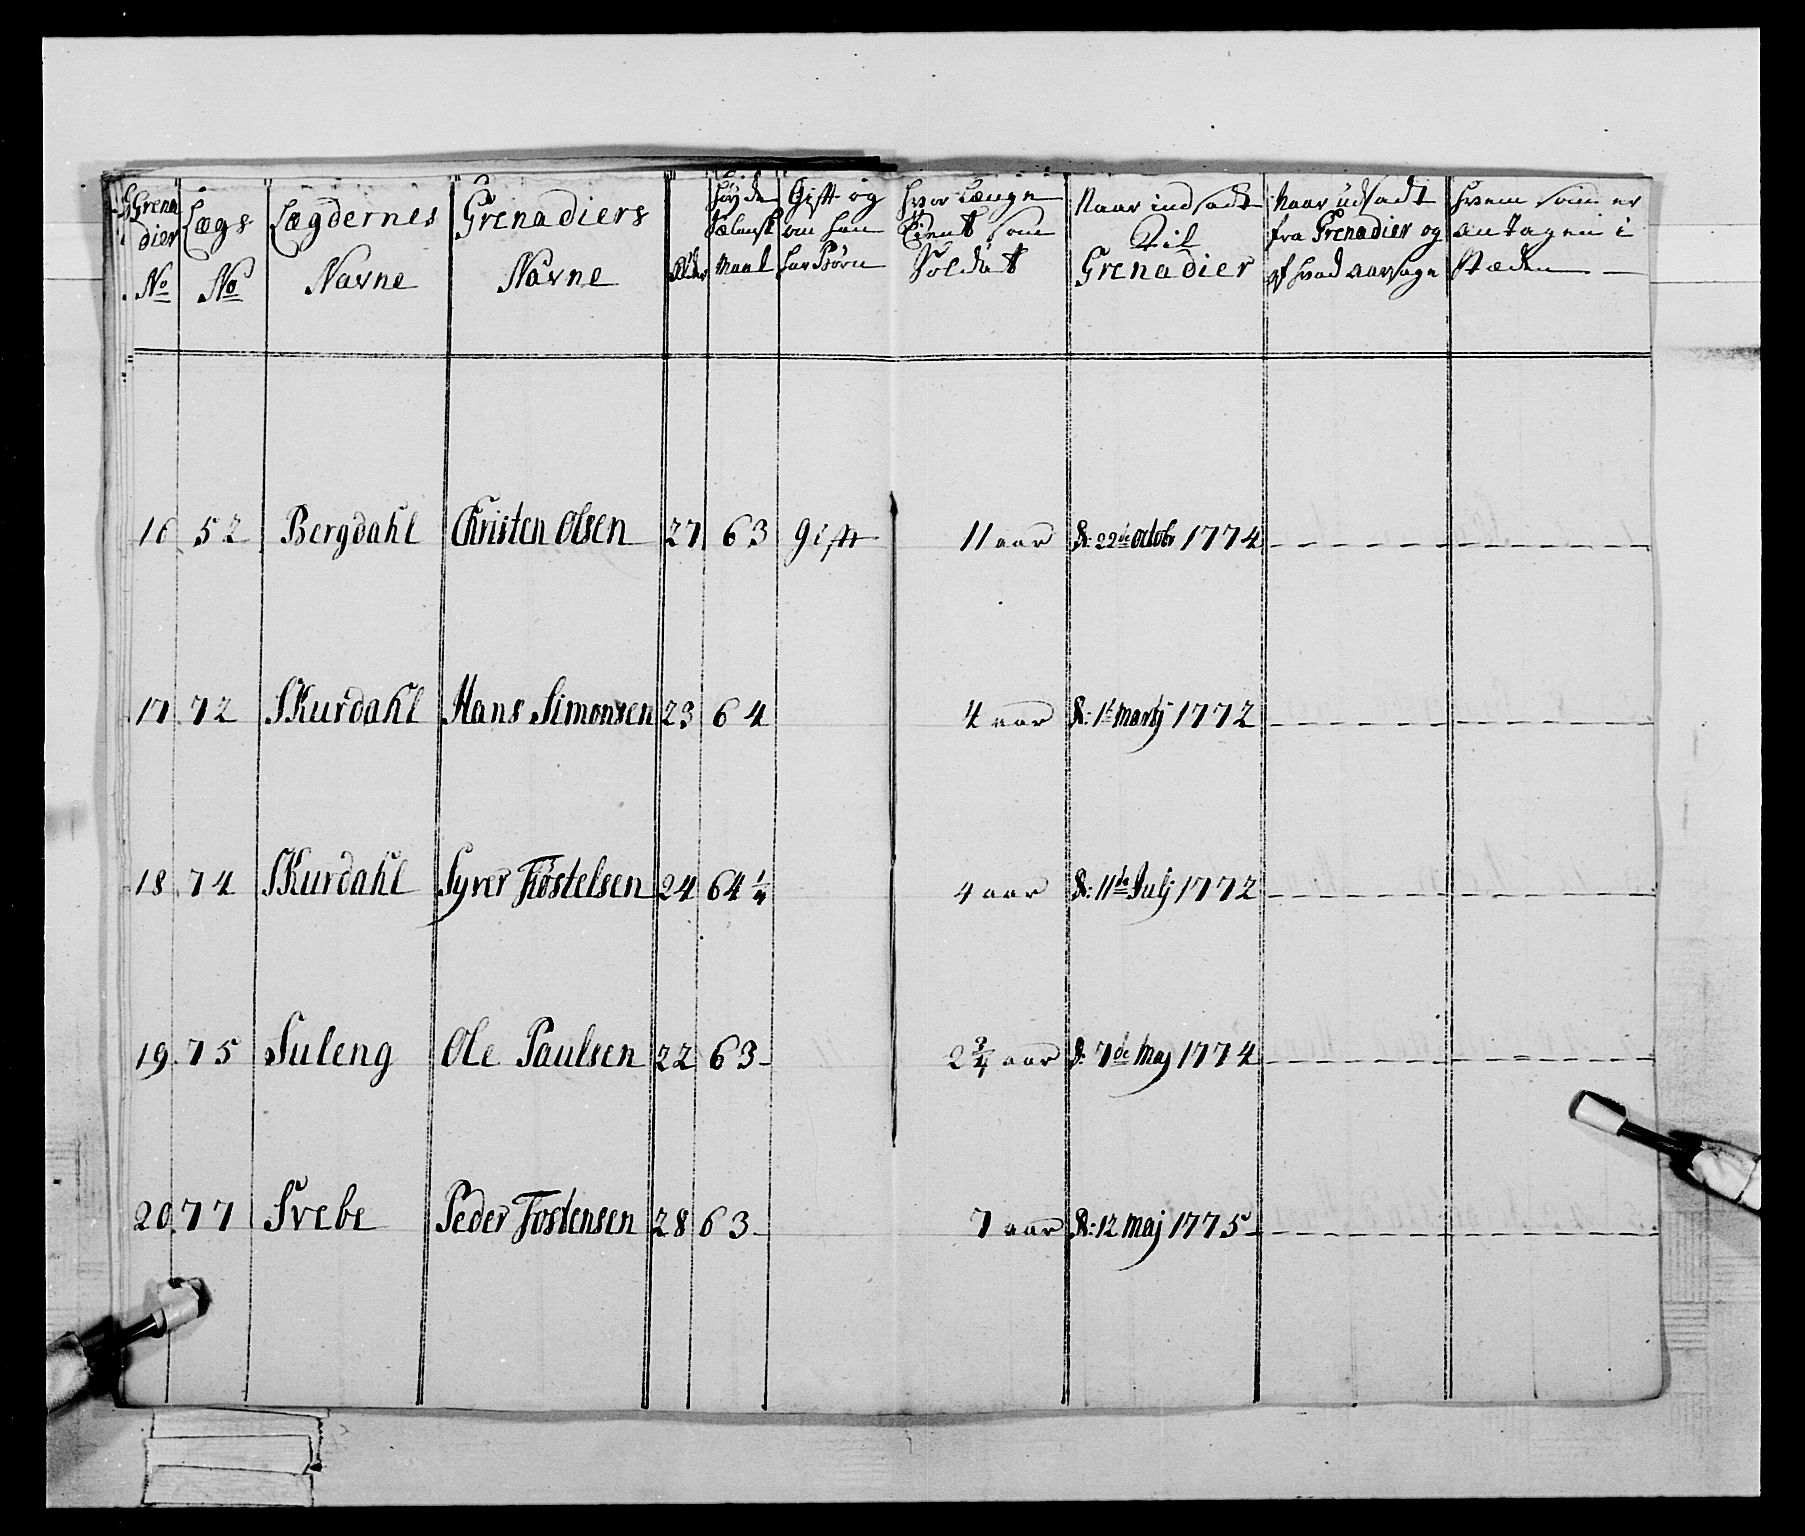 Grenadier No | Lægs No | Lægdernes Navne | Grenadiers Navne | Alder | Høyde Siælansk Maal | Gift og om han har Børn | Hvor Længe Tient som Soldat | Naar indsadt til Grenadier | Naar udsadt fra Grenadier og af hvad aarsage | Hvem som er antagen i Stæden
16 | 52 | Bergdahl | Christen Olsen | 27 | 63 | gift | 11 aar | D: 22de octobr 1774
17 | 72 | Skurdahl | Hans Simonsen | 23 | 64 | 4 aar | D: 1te martj 1772
18 | 74 | Skurdahl | Syver Tostelsen | 24 | 64 1/4 | 4 aar | D: 11de Julj 1772
19 | 75 | Suleng | Ole Paulsen | 22 | 63 | 2 3/4 aar | D: 7de Maj 1774
20 | 77 | Svebe | Peder Tostensen | 28 | 63 | 7 aar | D: 12 maj 1775